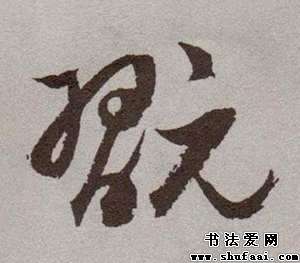 翫
书法爱网
www.shufaai.com